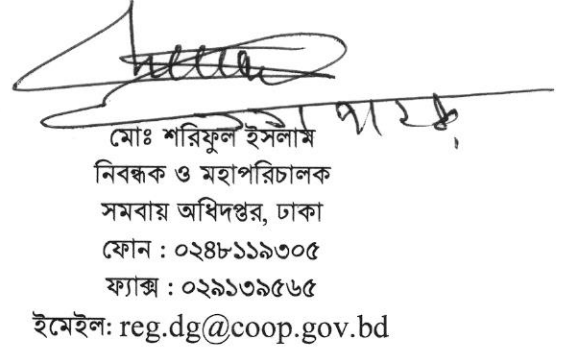 মোঃ শরিফুল ইসলাম
নিবন্ধক ও মহাপরিচালক
সমবায় অধিদপ্তর, ঢাকা
ফোন : ০২৪৮১১৯৩০৫
ফ্যাক্স : ০২৯১৩৯৫৬৫
ইমেইল: reg.dg@coop.gov.bd